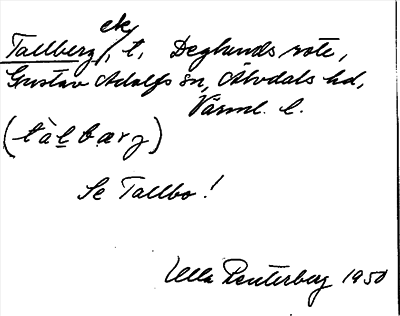 ek
Tallberg, t, Deglunds rote,
Gustav Adolfs sn, Älvdals hd,
Värml. l.
(tàlbærj)
Se Tallbo!
Ulla Reuterberg 1950